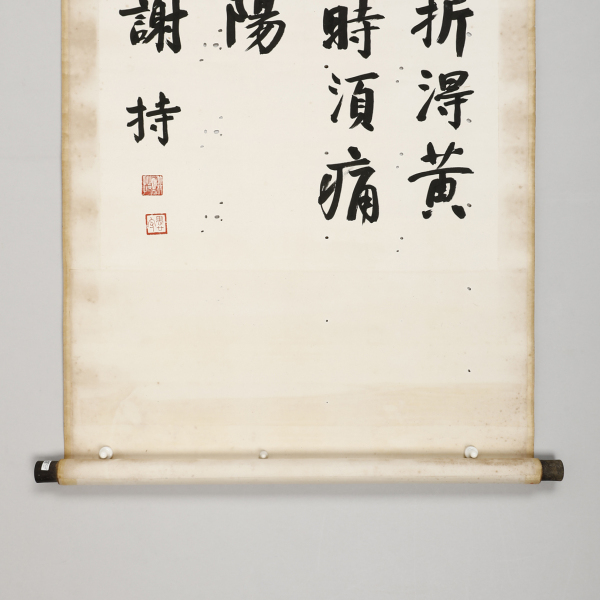 折得黄
時須痛
陽
謝持